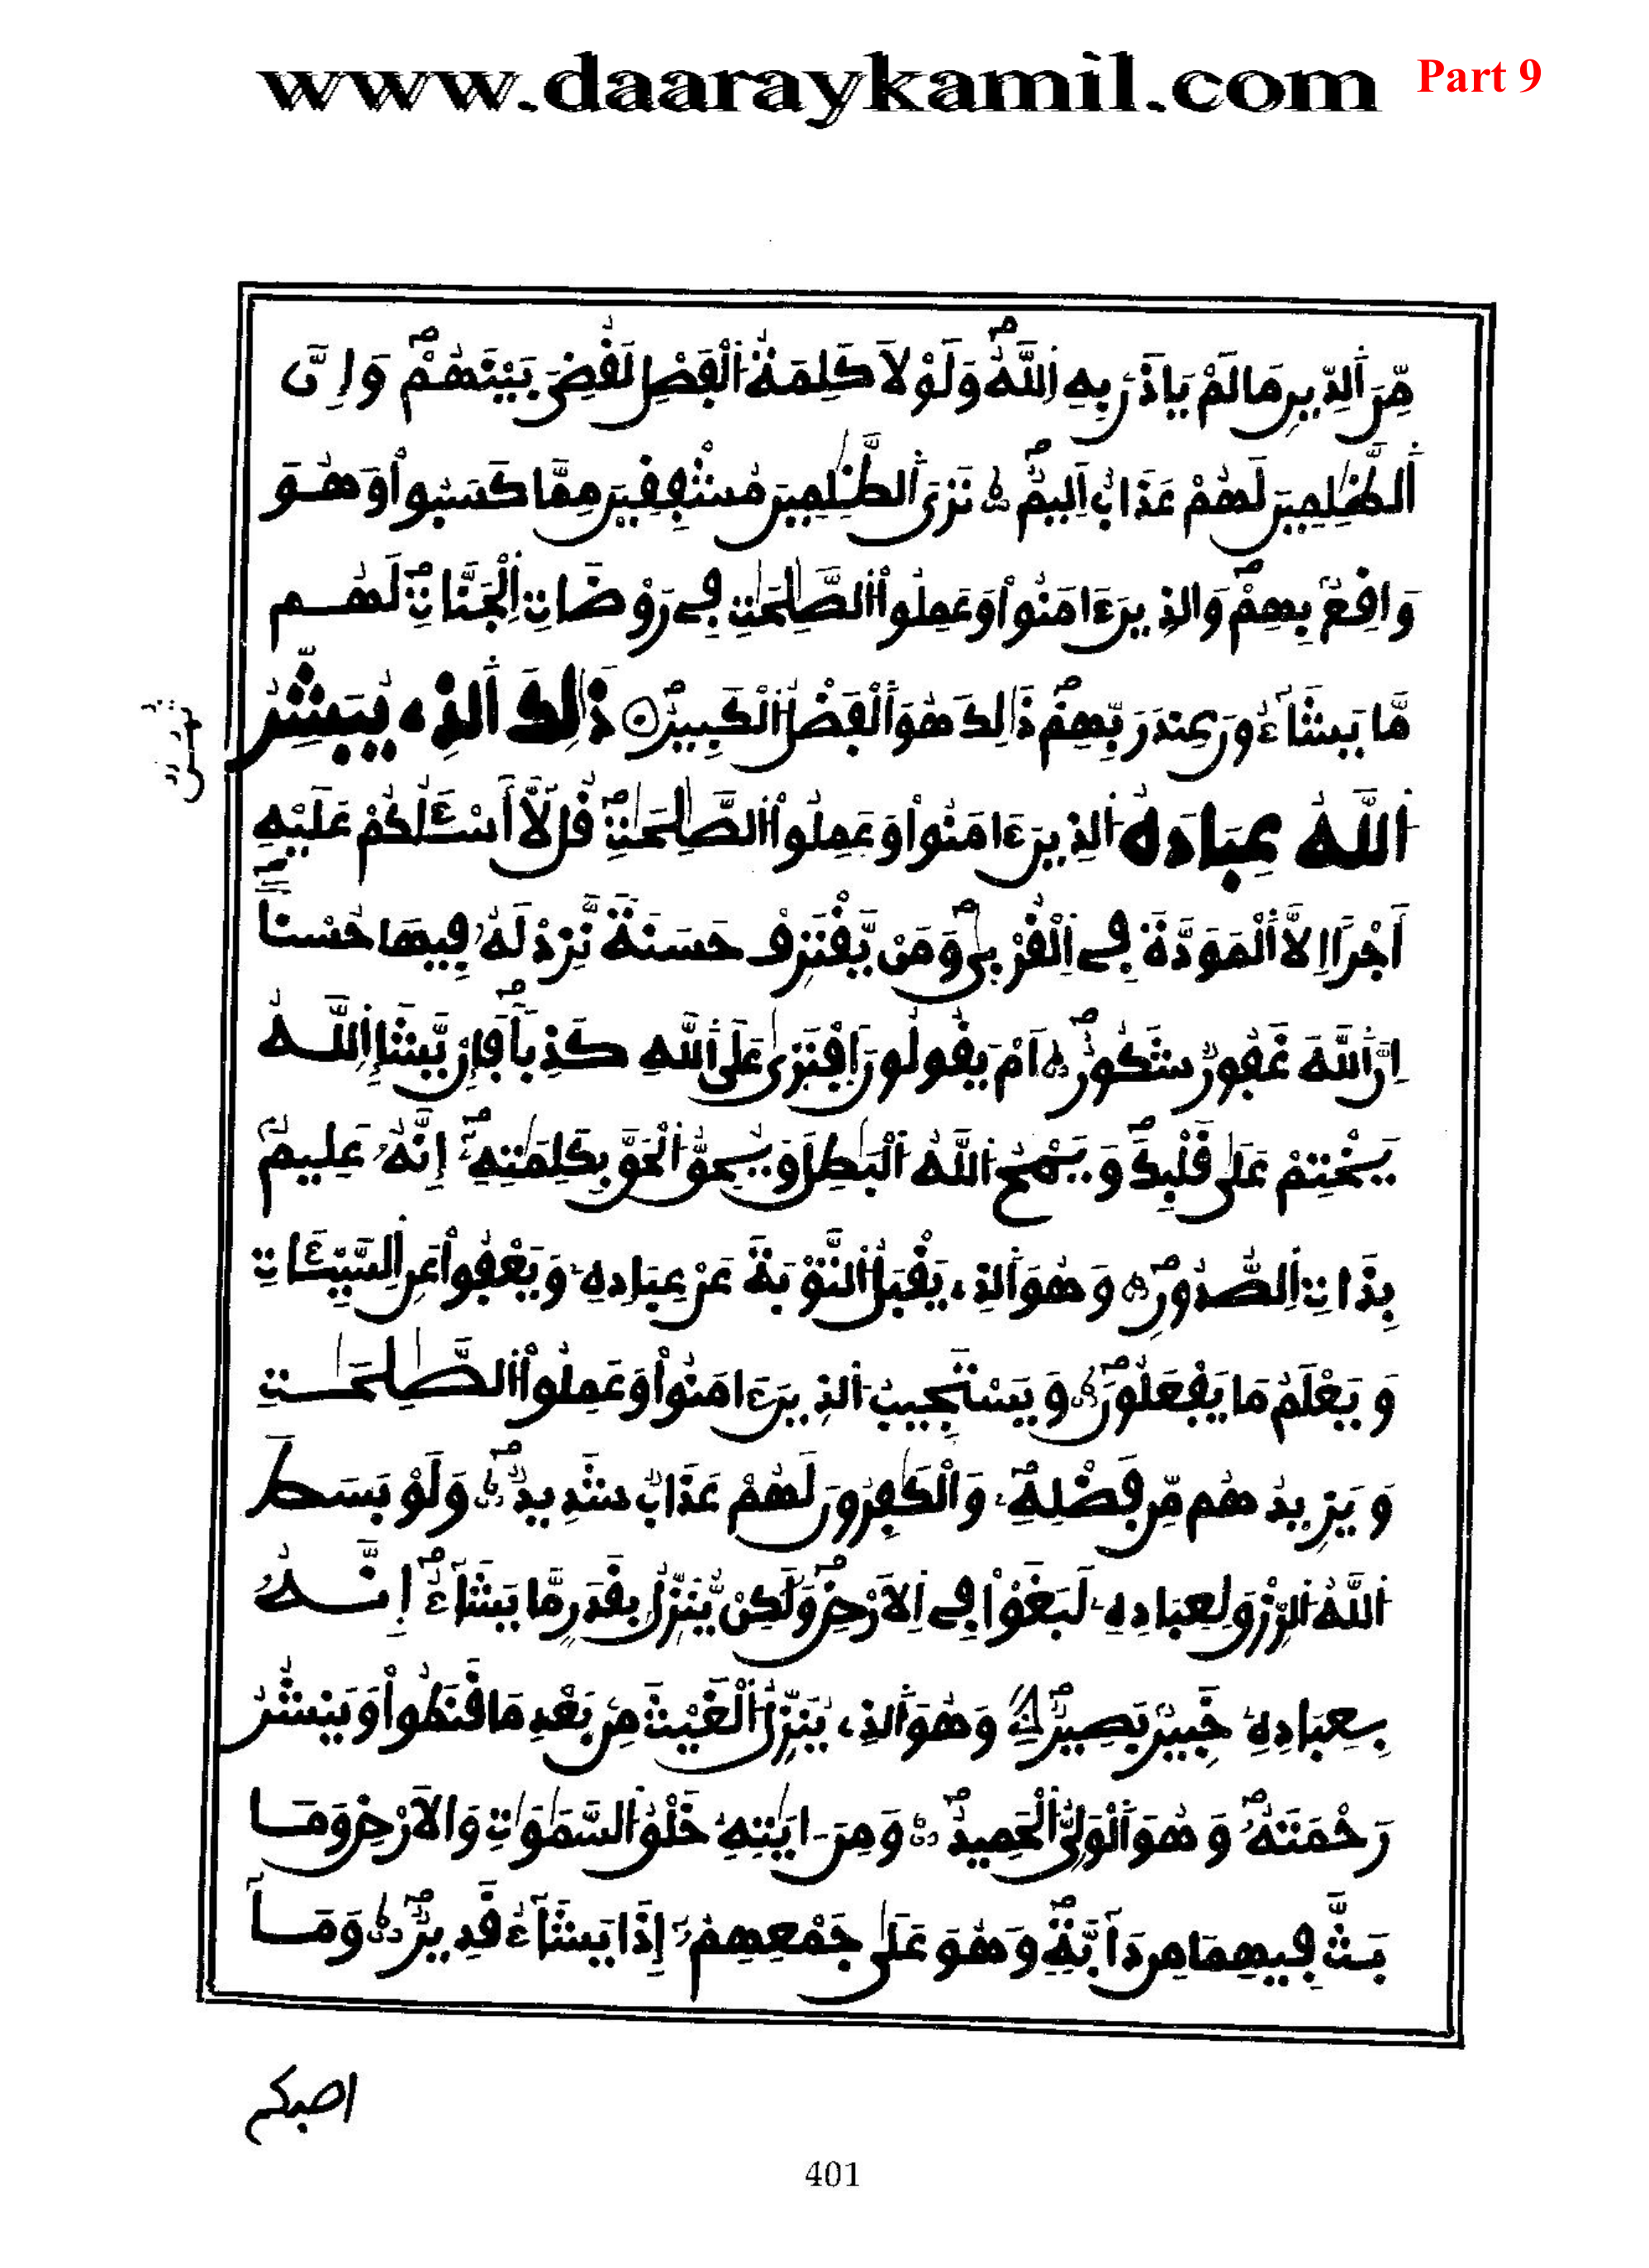 www.daaraykamil.com Part 9
مِّنَ اَ۬لدِّينِ مَا لَمْ يَاذَنۢ بِهِ اِ۬للَّهُۖ وَلَوْلَا كَلِمَةُ اُ۬لْفَصْلِ لَقُضِيَ بَيْنَهُمْۖ وَإِنَّ
اَ۬لظَّٰلِمِينَ لَهُمْ عَذَابٌ اَلِيمٌۖ تَرَي اَ۬لظَّٰلِمِينَ مُشْفِقِينَ مِمَّا كَسَبُواْ وَهُوَ
وَاقِعُۢ بِهِمْۖ وَالذِينَ ءَامَنُواْ وَعَمِلُواْ اُ۬لصَّٰلِحَٰتِ فِے رَوْضَاتِ اِ۬لْجَنَّاتِۖ لَهُم
مَّا يَشَآءُونَ عِندَ رَبِّهِمْۖ ذَٰلِكَ هُوَ اَ۬لْفَضْلُ اُ۬لْكَبِيرُۖ ذَٰلِكَ اَ۬لذِے يُبَشِّرُ
اُ۬للَّهُ عِبَادَهُ اُ۬لذِينَ ءَامَنُواْ وَعَمِلُواْ اُ۬لصَّٰلِحَٰتِۖ قُل لَّآ أَسْـَٔلُكُمْ عَلَيْهِ
أَجْراً اِلَّا اَ۬لْمَوَدَّةَ فِے اِ۬لْقُرْب۪يٰۖ وَمَنْ يَّقْتَرِفْ حَسَنَةٗ نَّزِدْ لَهُۥ فِيهَا حُسْناً
اِنَّ اَ۬للَّهَ غَفُورٞ شَكُورٌۖ اَمْ يَقُولُونَ اَ۪فْتَر۪يٰ عَلَي اَ۬للَّهِ كَذِباٗۖ فَإِنْ يَّشَإِ اِ۬للَّهُ
يَخْتِمْ عَلَيٰ قَلْبِكَۖ وَيَمْحُ اُ۬للَّهُ اُ۬لْبَٰطِلَ وَيُحِقُّ اُ۬لْحَقَّ بِكَلِمَٰتِهِۦٓۖ إِنَّهُۥ عَلِيمُۢ
بِذَاتِ اِ۬لصُّدُورِۖ وَهُوَ اَ۬لذِے يَقْبَلُ اُ۬لتَّوْبَةَ عَنْ عِبَادِهِۦ وَيَعْفُواْ عَنِ اِ۬لسَّيِّـَٔاتِ
وَيَعْلَمُ مَا يَفْعَلُونَۖ وَيَسْتَجِيبُ اُ۬لذِينَ ءَامَنُواْ وَعَمِلُواْ اُ۬لصَّٰلِحَٰتِ
وَيَزِيدُهُم مِّن فَضْلِهِۦۖ وَالْكَٰفِرُونَ لَهُمْ عَذَابٞ شَدِيدٞۖ وَلَوْ بَسَطَ
اَ۬للَّهُ اُ۬لرِّزْقَ لِعِبَادِهِۦ لَبَغَوْاْ فِے اِ۬لَارْضِۖ وَلَٰكِنْ يُّنَزِّلُ بِقَدَرٖ مَّا يَشَآءُۖ اِنَّهُۥ
بِعِبَادِهِۦ خَبِيرُۢ بَصِيرٞۖ وَهُوَ اَ۬لذِے يُنَزِّلُ اُ۬لْغَيْثَ مِنۢ بَعْدِ مَا قَنَطُواْ وَيَنشُرُ
رَحْمَتَهُۥۖ وَهُوَ اَ۬لْوَلِيُّ اُ۬لْحَمِيدُۖ وَمِنَ اٰيَٰتِهِۦ خَلْقُ اُ۬لسَّمَٰوَٰتِ وَالَارْضِ وَمَا
بَثَّ فِيهِمَا مِن دَآبَّةٖۖ وَهُوَ عَلَيٰ جَمْعِهِمُۥٓ إِذَا يَشَآءُ قَدِيرٞۖ وَمَآ
اصبكم
401